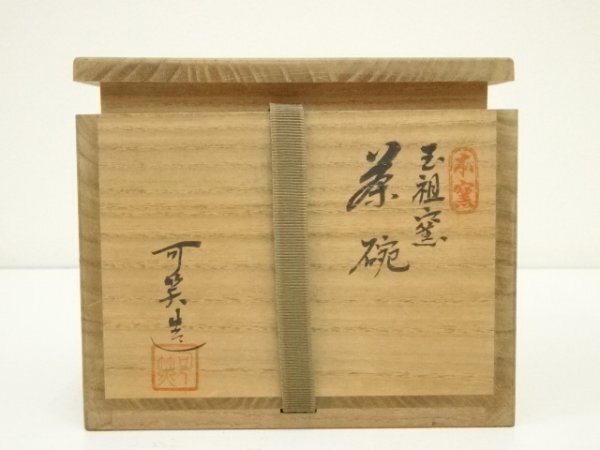 玉祖窯
茶碗
可笑造